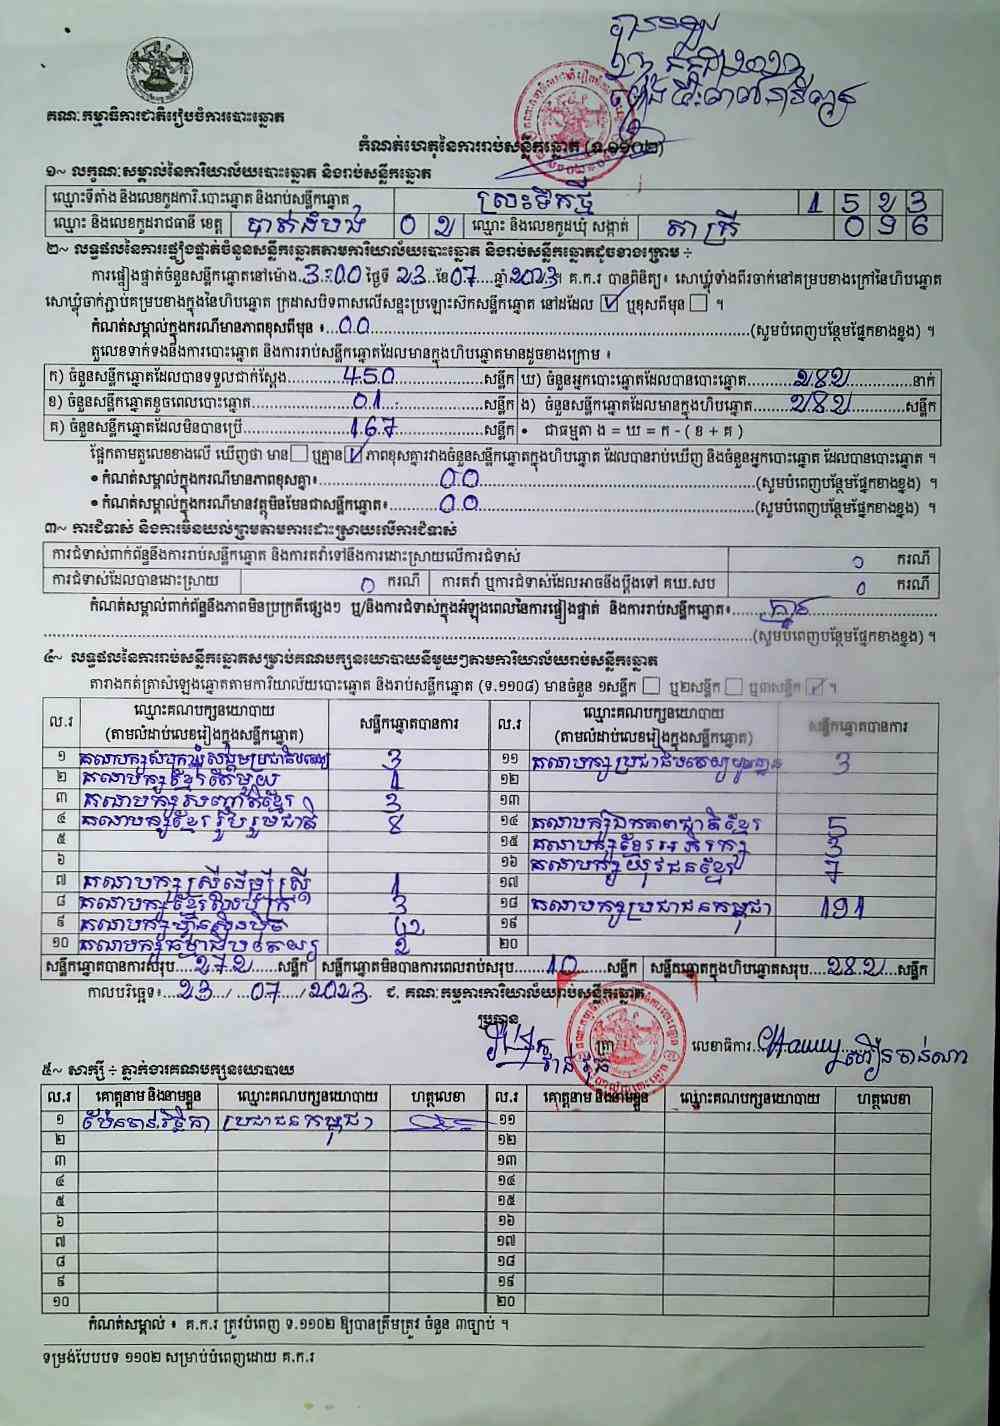 គណៈកម្មាធិការជាតិរៀបចំការបោះឆ្នោត
កំណត់ហេតុនៃការរាប់សន្លឹកឆ្នោត (ទ.១១០២)
១~ លក្ខណៈសម្គាល់នៃការិយាល័យបោះឆ្នោត និងរាប់សន្លឹកឆ្នោត
ឈ្មោះទីតាំង និងលេខកូដការិ.បោះឆ្នោត និងរាប់សន្លឹកឆ្នោត ស្រះទឹកថ្មី 1 5 2 3
ឈ្មោះ និងលេខកូដរាជធានី ខេត្ត បាត់ដំបង 0 2 ឈ្មោះ និងលេខកូដឃុំ សង្កាត់ តាគ្រី 0 9 6
២~ លទ្ធផលនៃការផ្ទៀងផ្ទាត់ចំនួនសន្លឹកឆ្នោតតាមការិយាល័យបោះឆ្នោត និងរាប់សន្លឹកឆ្នោតដូចខាងក្រោម ÷
ការផ្ទៀងផ្ទាត់ចំនួនសន្លឹកឆ្នោតនៅម៉ោង 3:00 ថ្ងៃទី 23 ខែ 07 ឆ្នាំ 2023។ គ.ក.រ បានពិនិត្យ៖ សោឃ្លុំទាំងពីរចាក់នៅគម្របខាងក្រៅនៃហិបឆ្នោត
សោឃ្លុំចាក់ភ្ជាប់គម្របខាងក្នុងនៃហិបឆ្នោត ក្រដាសបិទពាសលើសន្ទះប្រឡោះសិកសន្លឹកឆ្នោត នៅដដែល ☑ ឬខុសពីមុន ☐ ។
កំណត់សម្គាល់ក្នុងករណីមានភាពខុសពីមុន ៖ 00 (សូមបំពេញបន្ថែមផ្នែកខាងខ្នង) ។
តួលេខទាក់ទងនឹងការបោះឆ្នោត និងការរាប់សន្លឹកឆ្នោតដែលមានក្នុងហិបឆ្នោតមានដូចខាងក្រោម ៖
ក) ចំនួនសន្លឹកឆ្នោតដែលបានទទួលជាក់ស្តែង 450 សន្លឹក ឃ) ចំនួនអ្នកបោះឆ្នោតដែលបានបោះឆ្នោត 282 នាក់
ខ) ចំនួនសន្លឹកឆ្នោតខូចពេលបោះឆ្នោត 01 សន្លឹក ង) ចំនួនសន្លឹកឆ្នោតដែលមានក្នុងហិបឆ្នោត 282 សន្លឹក
គ) ចំនួនសន្លឹកឆ្នោតដែលមិនបានប្រើ 167 សន្លឹក • ជាធម្មតា ង = ឃ = ក - ( ខ + គ )
ផ្អែកតាមតួលេខខាងលើ ឃើញថា មាន ☐ ឬគ្មាន ☑ ភាពខុសគ្នារវាងចំនួនសន្លឹកឆ្នោតក្នុងហិបឆ្នោត ដែលបានរាប់ឃើញ និងចំនួនអ្នកបោះឆ្នោត ដែលបានបោះឆ្នោត ។
• កំណត់សម្គាល់ក្នុងករណីមានភាពខុសគ្នា៖ 00 (សូមបំពេញបន្ថែមផ្នែកខាងខ្នង) ។
• កំណត់សម្គាល់ក្នុងករណីមានវត្ថុមិនមែនជាសន្លឹកឆ្នោត៖ 00 (សូមបំពេញបន្ថែមផ្នែកខាងខ្នង) ។
៣~ ការជំទាស់ និងការមិនយល់ព្រមតាមការដោះស្រាយលើការជំទាស់
ការជំទាស់ពាក់ព័ន្ធនឹងការរាប់សន្លឹកឆ្នោត និងការតវ៉ាទៅនឹងការដោះស្រាយលើការជំទាស់ 0 ករណី
ការជំទាស់ដែលបានដោះស្រាយ 0 ករណី ការតវ៉ា ឬការជំទាស់ដែលអាចនឹងប្តឹងទៅ គឃ.សប 0 ករណី
កំណត់សម្គាល់ពាក់ព័ន្ធនឹងភាពមិនប្រក្រតីផ្សេងៗ ឬ/និងការជំទាស់ក្នុងអំឡុងពេលនៃការផ្ទៀងផ្ទាត់ និងការរាប់សន្លឹកឆ្នោត៖ គ្មាន
(សូមបំពេញបន្ថែមផ្នែកខាងខ្នង) ។
៤~ លទ្ធផលនៃការរាប់សន្លឹកឆ្នោតសម្រាប់គណបក្សនយោបាយនីមួយៗតាមការិយាល័យរាប់សន្លឹកឆ្នោត
តារាងកត់ត្រាសំឡេងឆ្នោតតាមការិយាល័យបោះឆ្នោត និងរាប់សន្លឹកឆ្នោត (ទ.១១០៨) មានចំនួន ១សន្លឹក ☐ ឬ២សន្លឹក ☐ ឬ៣សន្លឹក ☑ ។
ល.រ ឈ្មោះគណបក្សនយោបាយ (តាមលំដាប់លេខរៀងក្នុងសន្លឹកឆ្នោត) សន្លឹកឆ្នោតបានការ ល.រ ឈ្មោះគណបក្សនយោបាយ (តាមលំដាប់លេខរៀងក្នុងសន្លឹកឆ្នោត) សន្លឹកឆ្នោតបានការ
១ គណបក្ស សំបុកឃ្មុំសង្គមប្រជាធិបតេយ្យ 3 ១១ គណបក្សប្រជាធិបតេយ្យមូលដ្ឋាន 3
២ គណបក្សខ្មែរតែមួយ 1 ១២
៣ គណបក្សសញ្ជាតិខ្មែរ 3 ១៣
៤ គណបក្សខ្មែររួបរួមជាតិ 8 ១៤ គណបក្សឯកភាពជាតិខ្មែរ 5
៥ ១៥ គណបក្សខ្មែរអភិរក្ស 3
៦ ១៦ គណបក្សយុវជនខ្មែរ
៧ គណបក្សស្រីដើម្បីស្រ្តី 1 ១៧
៨ គណបក្សខ្មែរ 3 ១៨ គណបក្សប្រជាជនកម្ពុជា 191
៩ គណបក្សហ៊្វុនស៊ិនប៉ិច 42 ១៩
១០ គណបក្សធម្មាធិបតេយ្យ 2 ២០
សន្លឹកឆ្នោតបានការសរុប 272 សន្លឹក សន្លឹកឆ្នោតមិនបានការពេលរាប់សរុប 10 សន្លឹក សន្លឹកឆ្នោតក្នុងហិបឆ្នោតសរុប 282 សន្លឹក
កាលបរិច្ឆេទ៖ 23 / 07 / 2023 ជ. គណៈកម្មការការិយាល័យរាប់សន្លឹកឆ្នោត
ប្រធាន
លេខាធិការ
៥~ សាក្សី ÷ ភ្នាក់ងារគណបក្សនយោបាយ
ល.រ គោត្តនាម និងនាមខ្លួន ឈ្មោះគណបក្សនយោបាយ ហត្ថលេខា ល.រ គោត្តនាម និងនាមខ្លួន ឈ្មោះគណបក្សនយោបាយ ហត្ថលេខា
១ ប្រជាជនកម្ពុជា ១១
២ ១២
៣ ១៣
៤ ១៤
៥ ១៥
៦ ១៦
៧ ១៧
៨ ១៨
៩ ១៩
១០ ២០
កំណត់សម្គាល់ ៖ គ.ក.រ ត្រូវបំពេញ ទ.១១០២ ឱ្យបានត្រឹមត្រូវ ចំនួន ៣ច្បាប់ ។
ទម្រង់បែបបទ ១១០២ សម្រាប់បំពេញដោយ គ.ក.រ